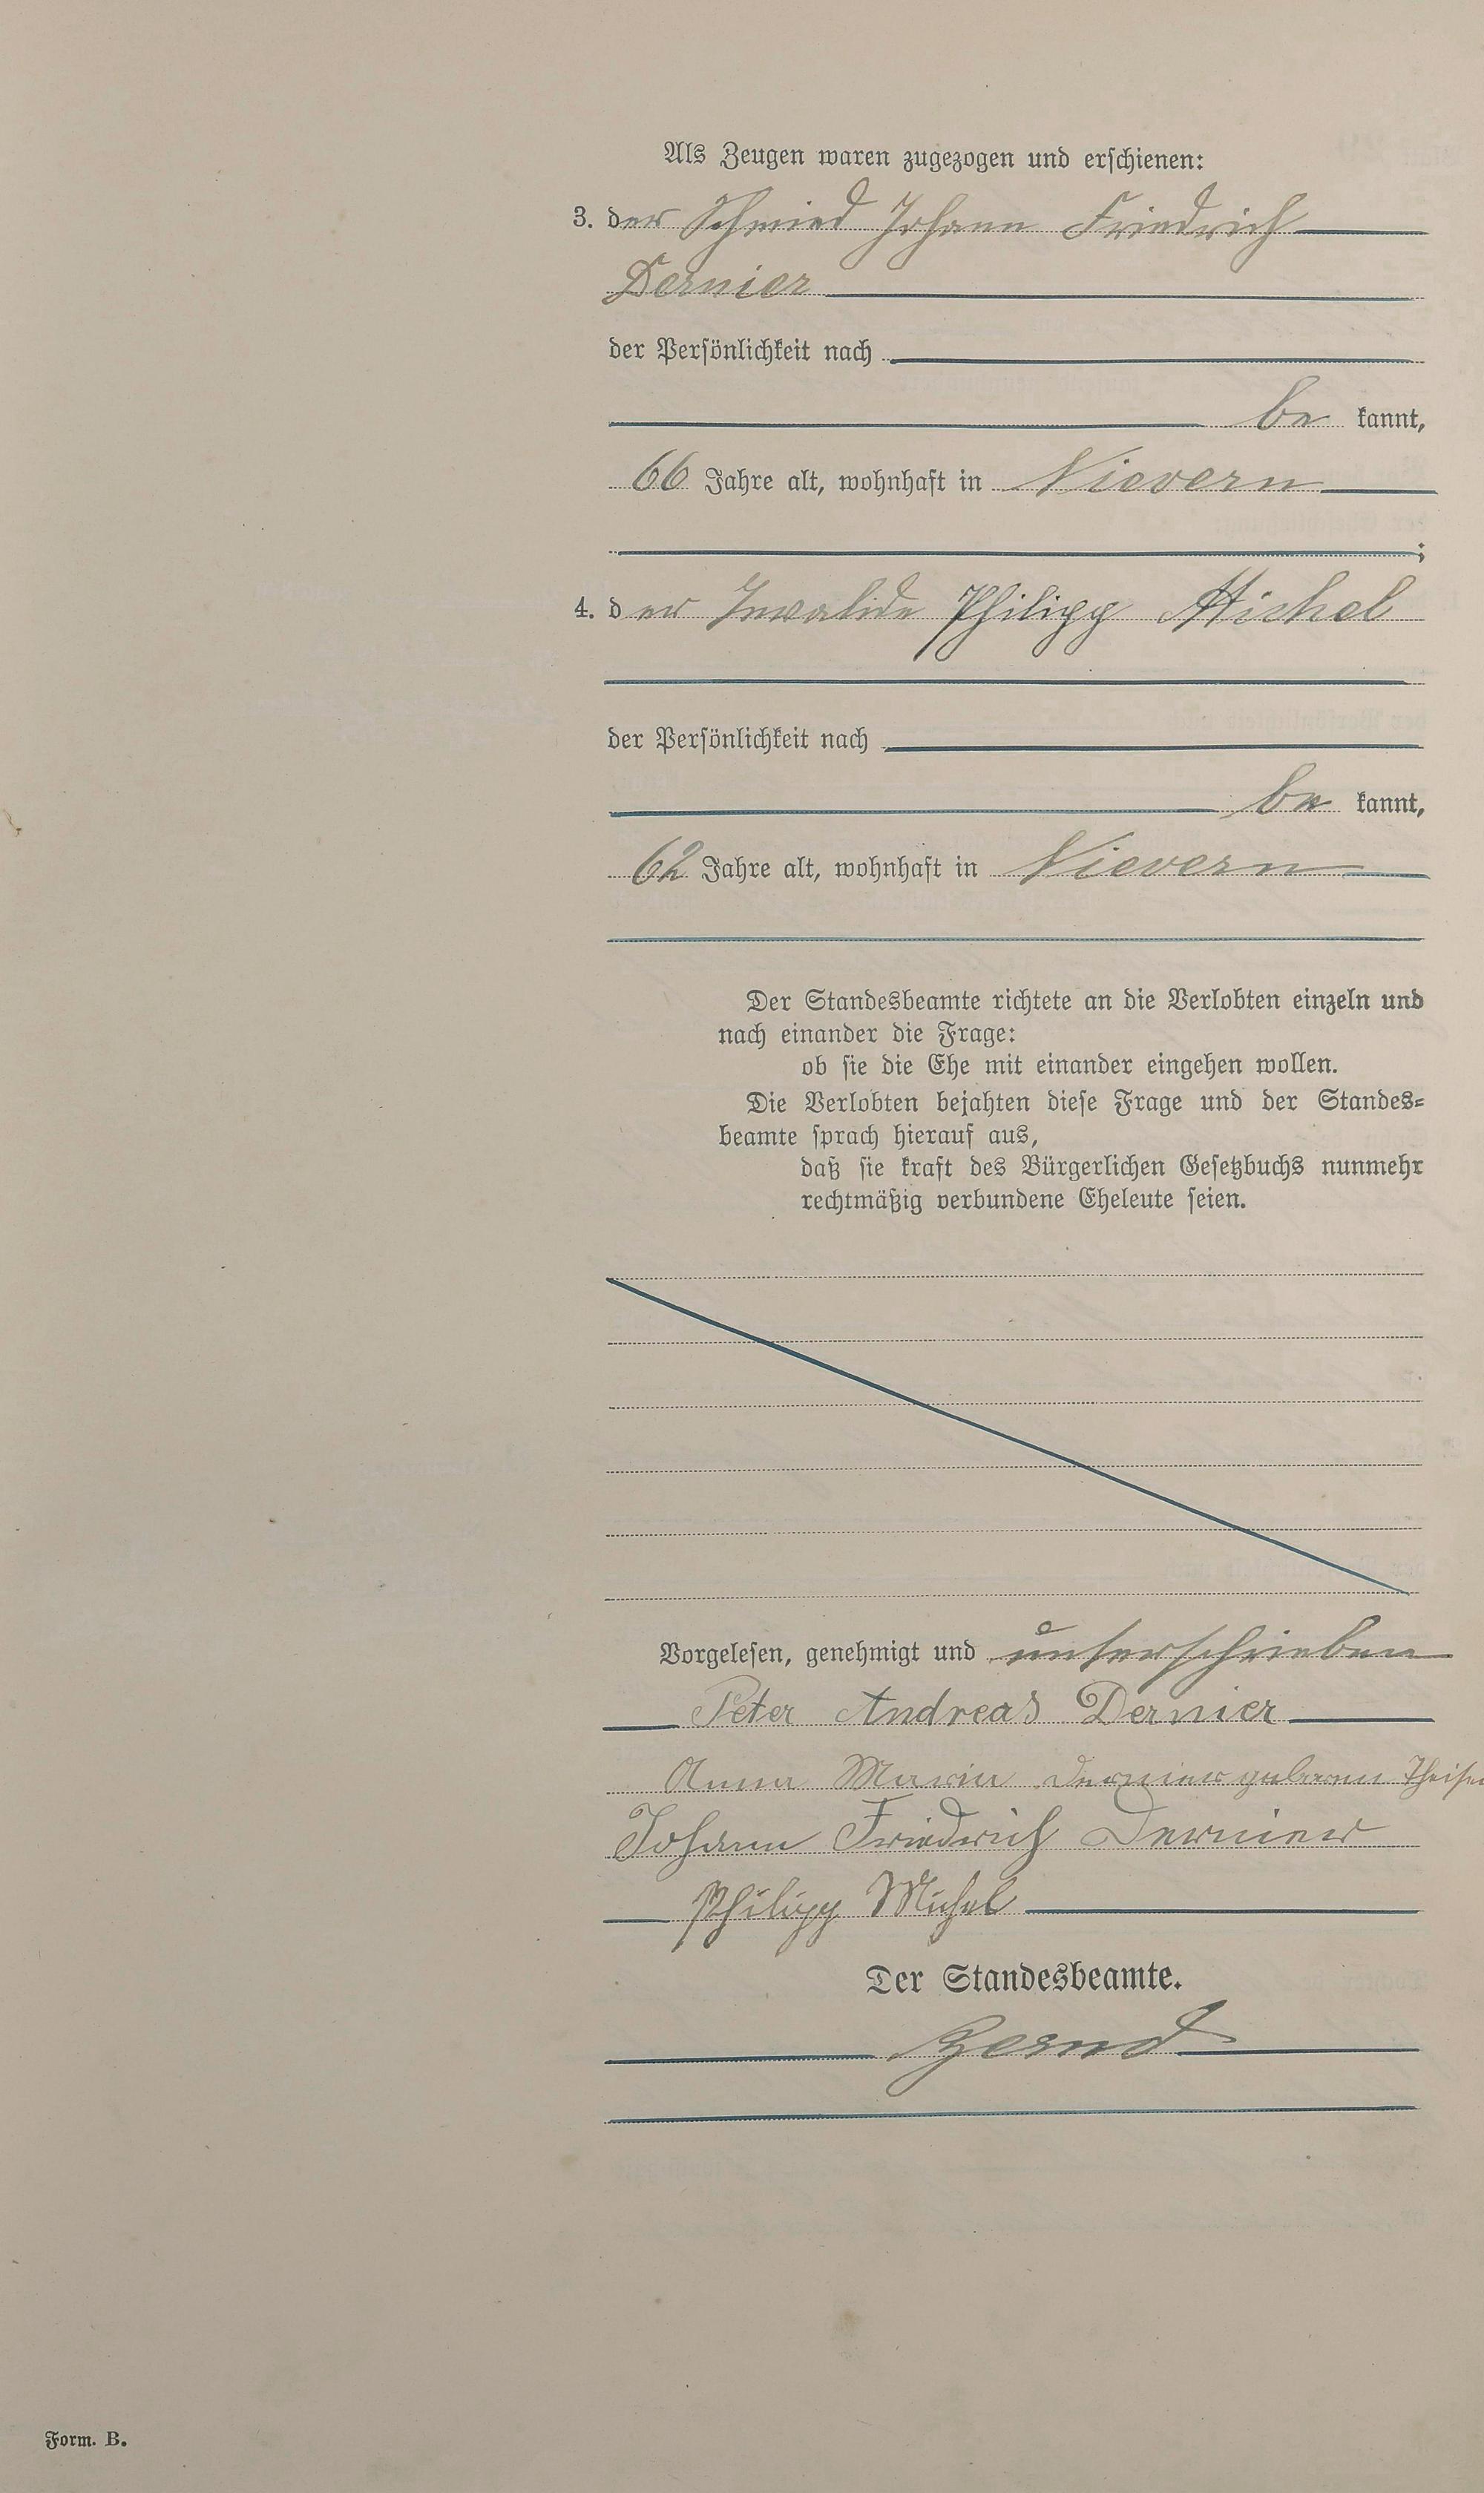 Als Zeugen waren zugezogen und erschienen:
3. der Schmied Johann Friedrich
Dernier
der Persönlichkeit nach
be kannt,
66 Jahre alt, wohnhaft in Nievern
;
4. der Invalide Philipp Michel
der Persönlichkeit nach
be kannt,
62 Jahre alt, wohnhaft in Nievern
Der Standesbeamte richtete an die Verlobten einzeln und
nach einander die Frage:
ob sie die Ehe mit einander eingehen wollen.
Die Verlobten bejahten diese Frage und der Standes=
beamte sprach hierauf aus,
daß sie kraft des Bürgerlichen Gesetzbuchs nunmehr
rechtmäßig verbundene Eheleute seien.
Vorgelesen, genehmigt und unterschrieben
Peter Andreas Dernier
Anna Maria Dernier geboren
Johann Friedrich Dernier
Philipp Michel
Der Standesbeamte.
Form. B.